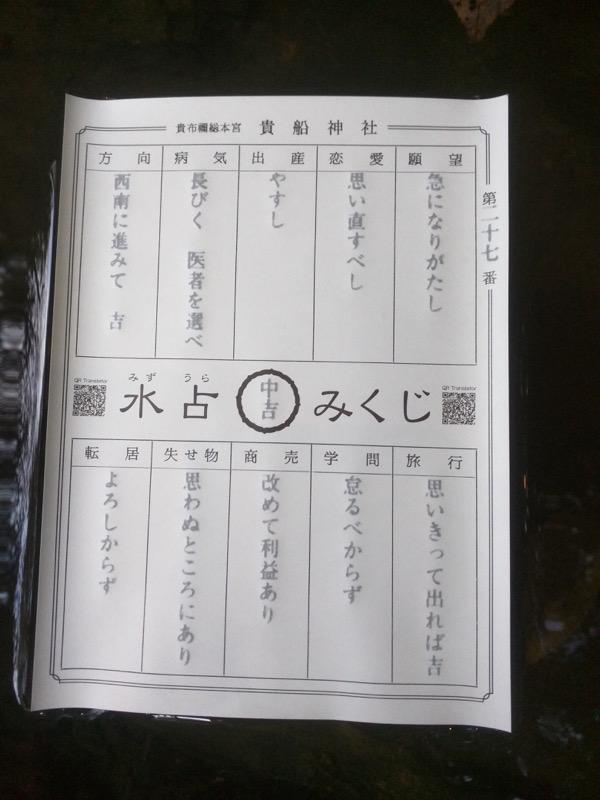 貴布禰総本宮 貴船神社
第二十七番
願望
急になりがたし
恋愛
思い直すべし
出産
やすし
病気
長びく 医者を選べ
方向
西南に進みて 吉
QR Translator
みず うら
水占 中吉 みくじ
QR Translator
旅行
思いきって出れば吉
学問
怠るべからず
商売
改めて利益あり
失せ物
思わぬところにあり
転居
よろしからず